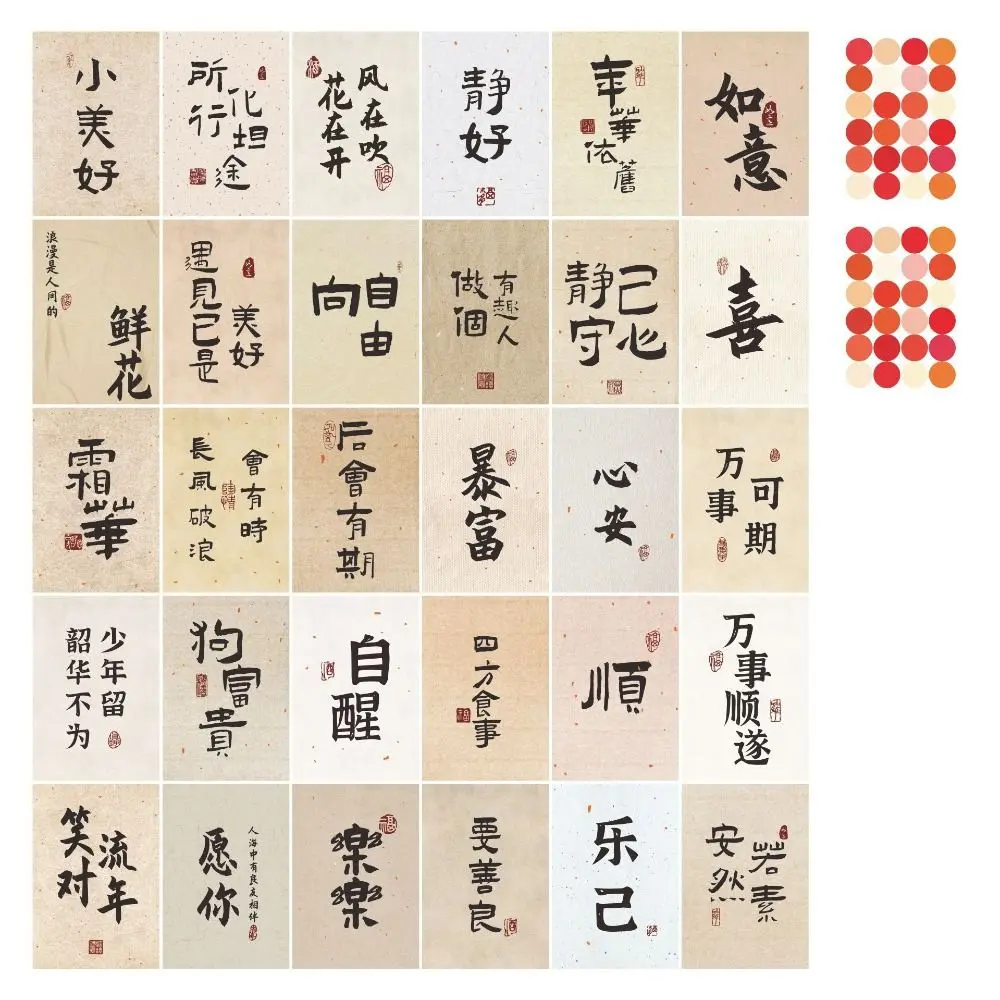 小美好
所行
化坦途
风在吹
花在开
静好
年華依舊
如意
浪漫是人间的
鲜花
遇見已是
美好
自由
向
有趣人
做個
己心
静守
喜
霜華
會有時
長風破浪
后會有期
暴富
心安
万事
可期
少年留
韶华不为
狗富貴
自醒
四方食事
順
万事顺遂
笑对
流年
愿你
人海中有良友相伴
樂樂
要善良
乐己
安然
若素